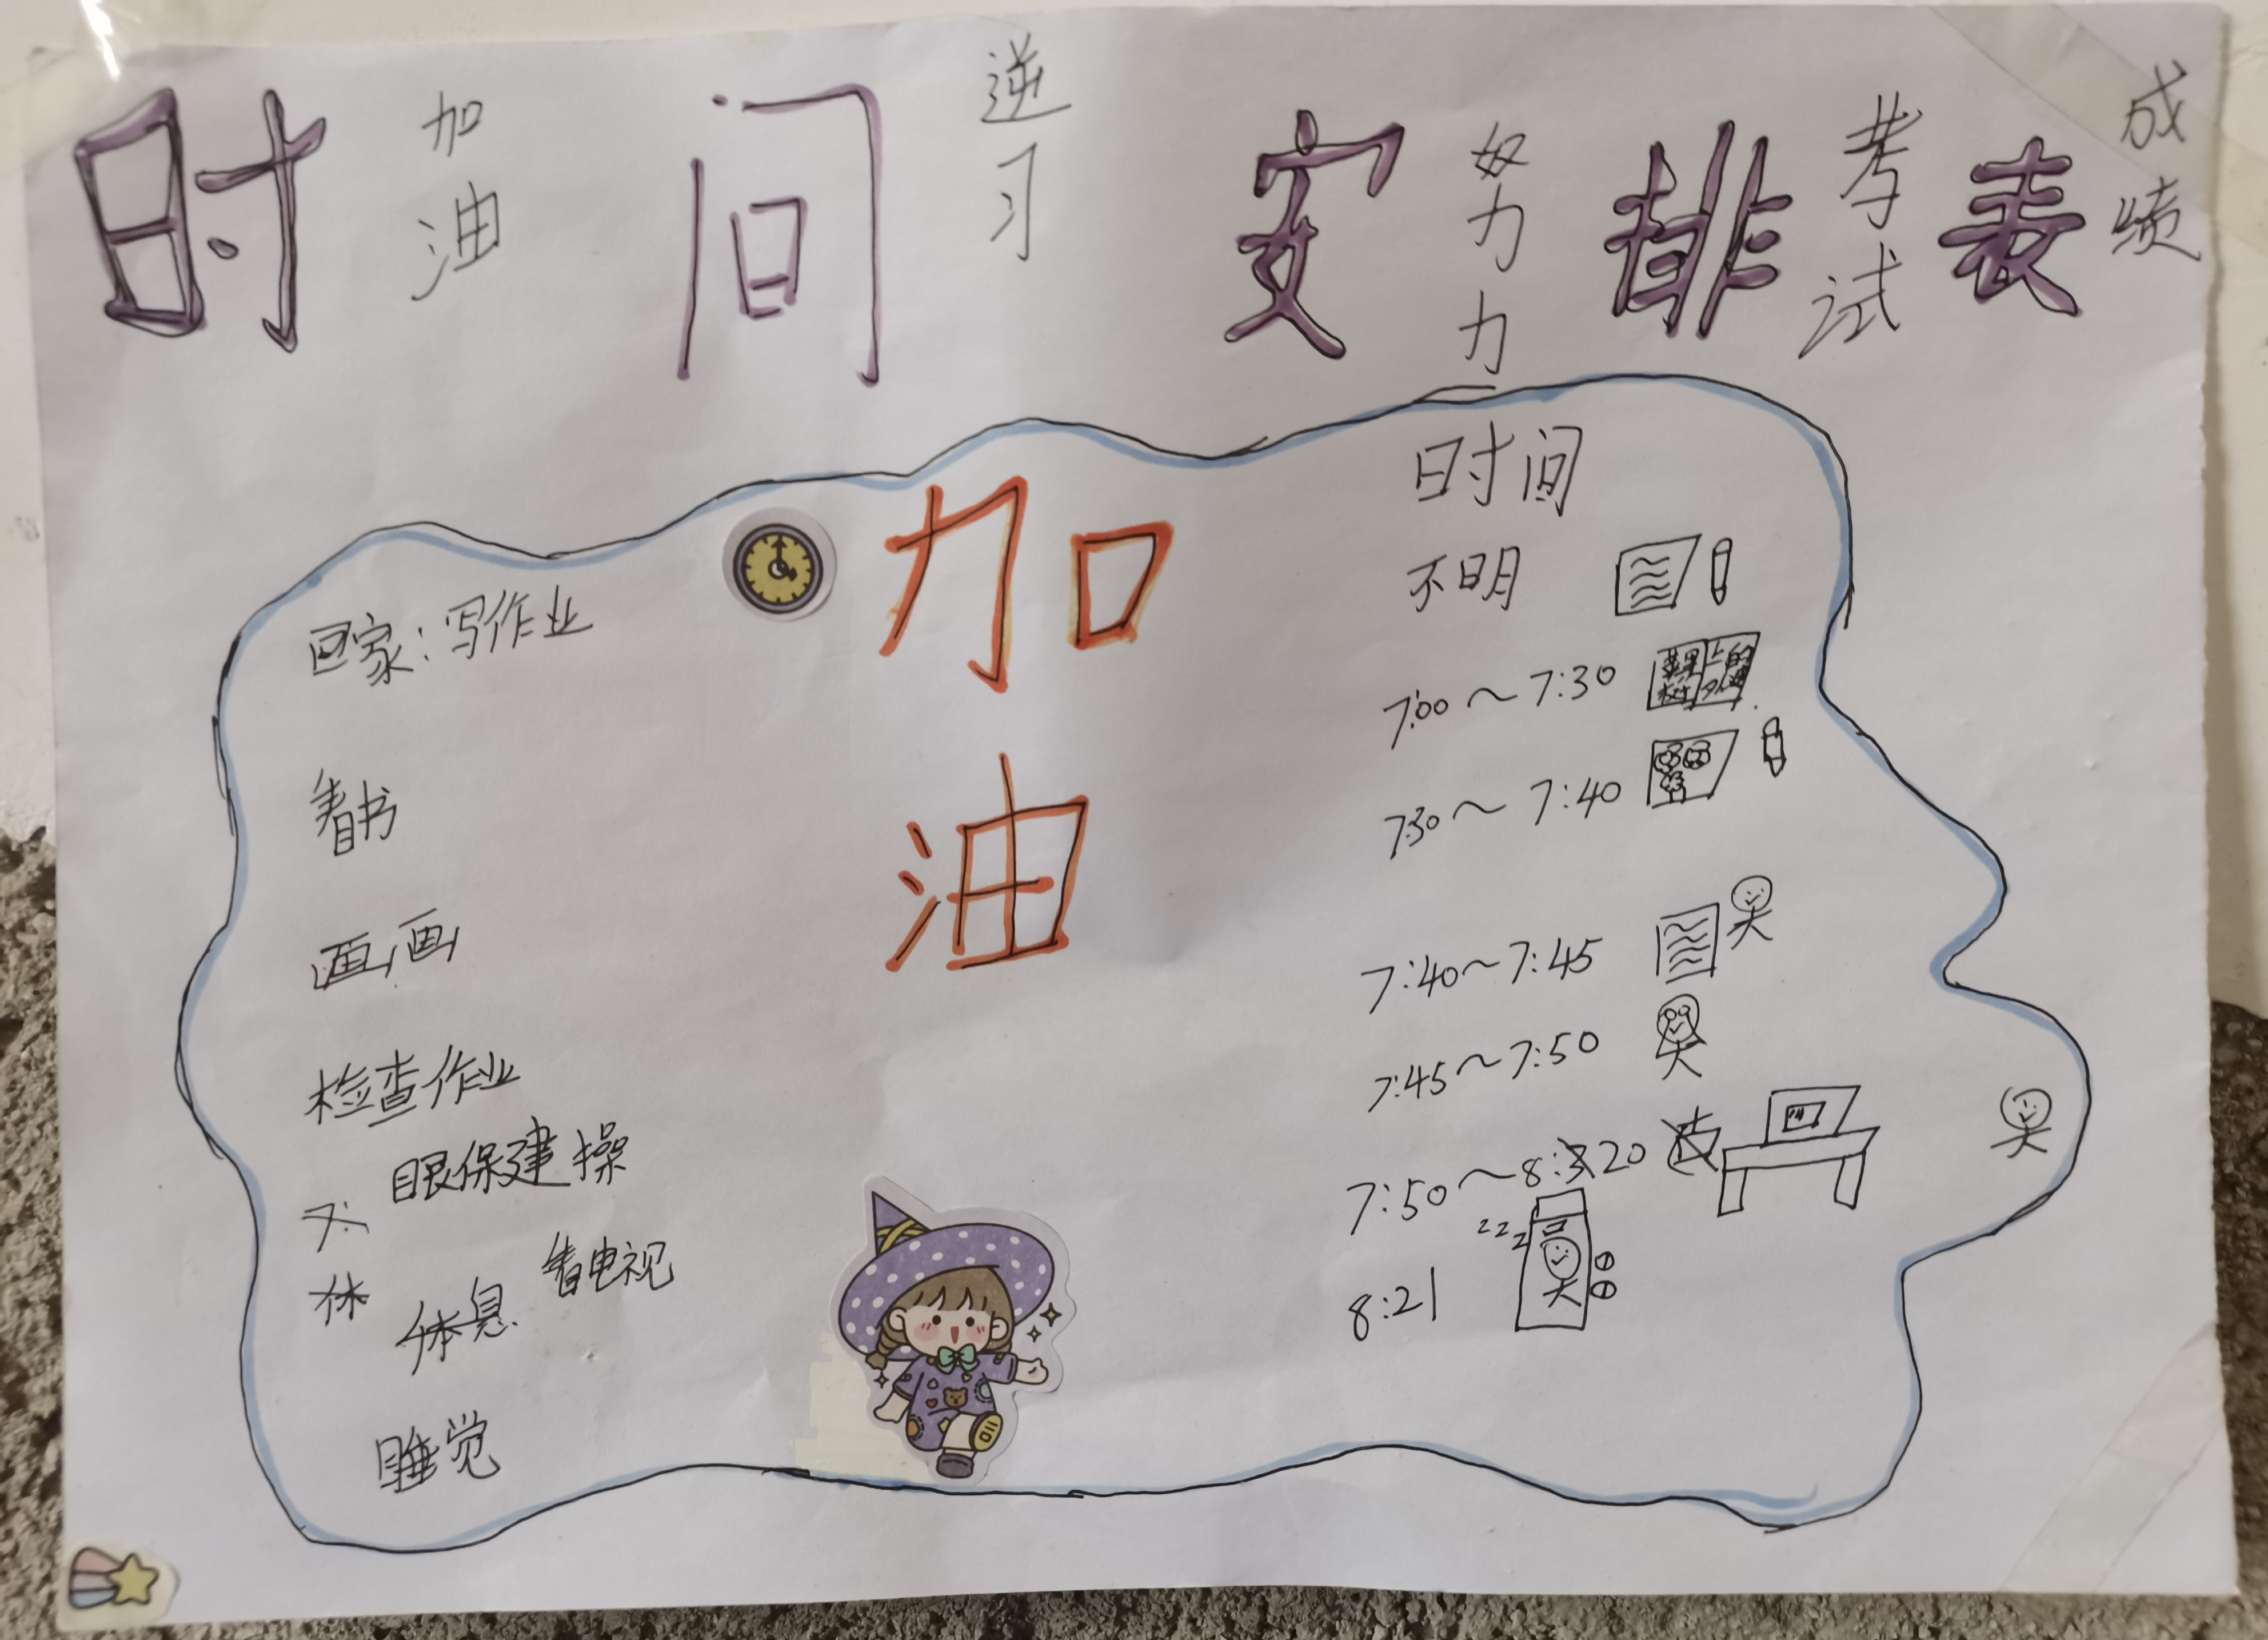 时间安排表
加油
逆习
努力
考试
成绩
加油
时间
回家：写作业
不明
看书
7:00～7:30
苹果树上的
画画
7:30～7:40
检查作业
7:40～7:45
眼保建操
7:45～7:50
休息 看电视
7:50～8:20
睡觉
zzz
8:21